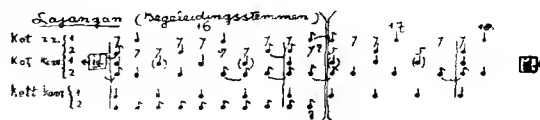 Lajangan (Begeleidingsstemmen)
16 17 18
Kot zz. { 1
2
Kot kem { 1
2
Kett kam { 1
2